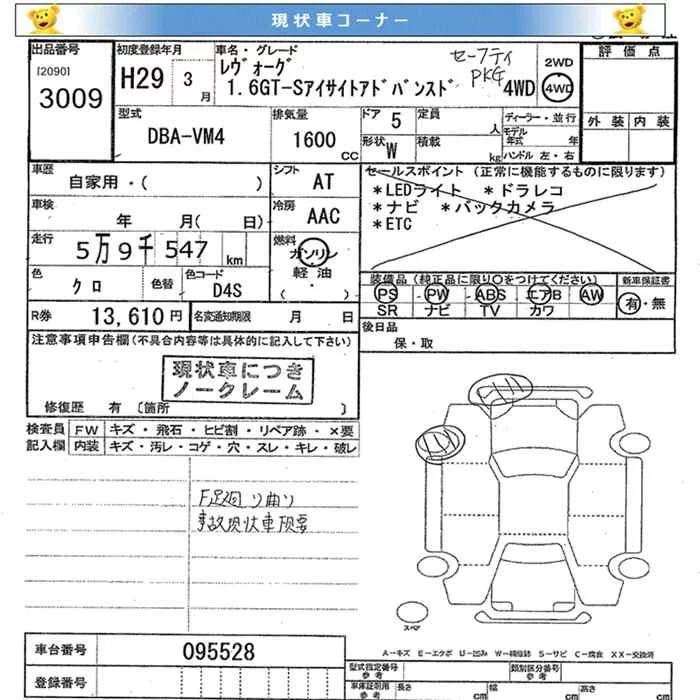 現状車コーナー
出品番号 初度登録年月 車名・グレード 評価点
[2090]
3009
H29 3 月
レヴォーグ セーフティ PKG
1.6GT-Sアイサイトアドバンスド 4WD
2WD
4WD
型式 DBA-VM4
排気量 1600 cc
ドア 5 定員 人
形状 W 積載 kg
ディーラー・並行
モデル年式 年
ハンドル 左・右
外装 内装
車歴 自家用・( )
シフト AT
セールスポイント (正常に機能するものに限ります)
*LEDライト *ドラレコ
*ナビ *バックカメラ
*ETC
車検 年 月( 日)
冷房 AAC
走行 5万9千547 km
燃料 ガソリン
軽油
・( )
色 クロ 色替 色コード D4S
装備品(純正品に限り○をつけてください) 新車保証書
PS PW ABS エアB AW 有・無
SR ナビ TV カワ
R券 13,610円 名変通知期限 月 日
後日品
保・取
注意事項申告欄(不具合内容等は具体的に記入して下さい)
現状車につき
ノークレーム
修復歴 有 [箇所 ]
検査員 FW キズ・飛石・ヒビ割・リペア跡・×要
記入欄 内装 キズ・汚レ・コゲ・穴・スレ・キレ・破レ
F足廻り曲り
事故現状車預要
スペア
A-キズ E-エクボ U-凹み W-補修跡 S-サビ C-腐食 XX-交換済
車台番号 095528
登録番号
型式指定番号 参考 類別区分番号 参考
車庫証明用 参考 長さ cm 幅 cm 高さ cm